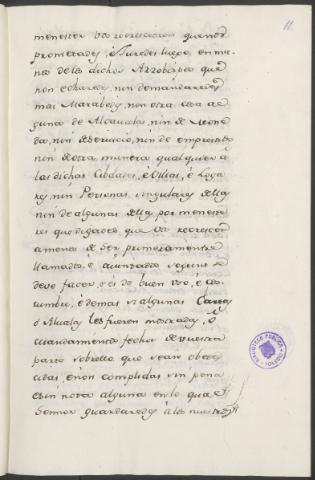 11
menester vos recrecieren que non
prometades, é Juredes luego en ma-
nos de los dichos Arzobispos que
non echaredes, nin demandaredes
mas Maravedis, nin otra cosa al-
guna de Alcavala, nin de Mone-
da, nin de servicio, nin de emprestido
nin de otra manera qualquier á
las dichas Cibdades, é Villas, é Loga-
res, nin Personas singulares della
nin de algunas dellas por meneste-
res que digades que vos recrescer
amenos de ser primeramente
llamados, é ayuntados segund se
debe facer, é es de buen uso, é cos-
tumbre, é demas si algunas Cartas
ó Alvalas les fueren mostradas, ó
mandamiento fechos de vuestra
parte sobrello que sean obede-
cidas, é non complidas sin pena
é sin nota alguna en lo qual
Sennor guardaredes á los nuestros
BIBLIOTECA PUBLICA
TOLEDO